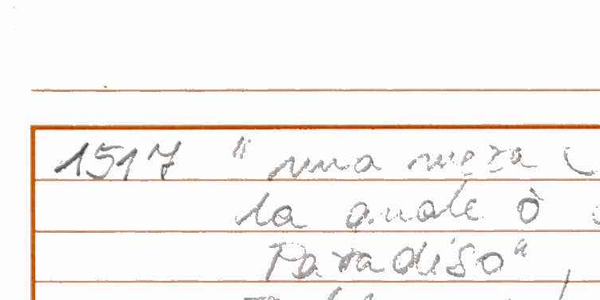 1517 " una meza
la quale è
Paradiso"